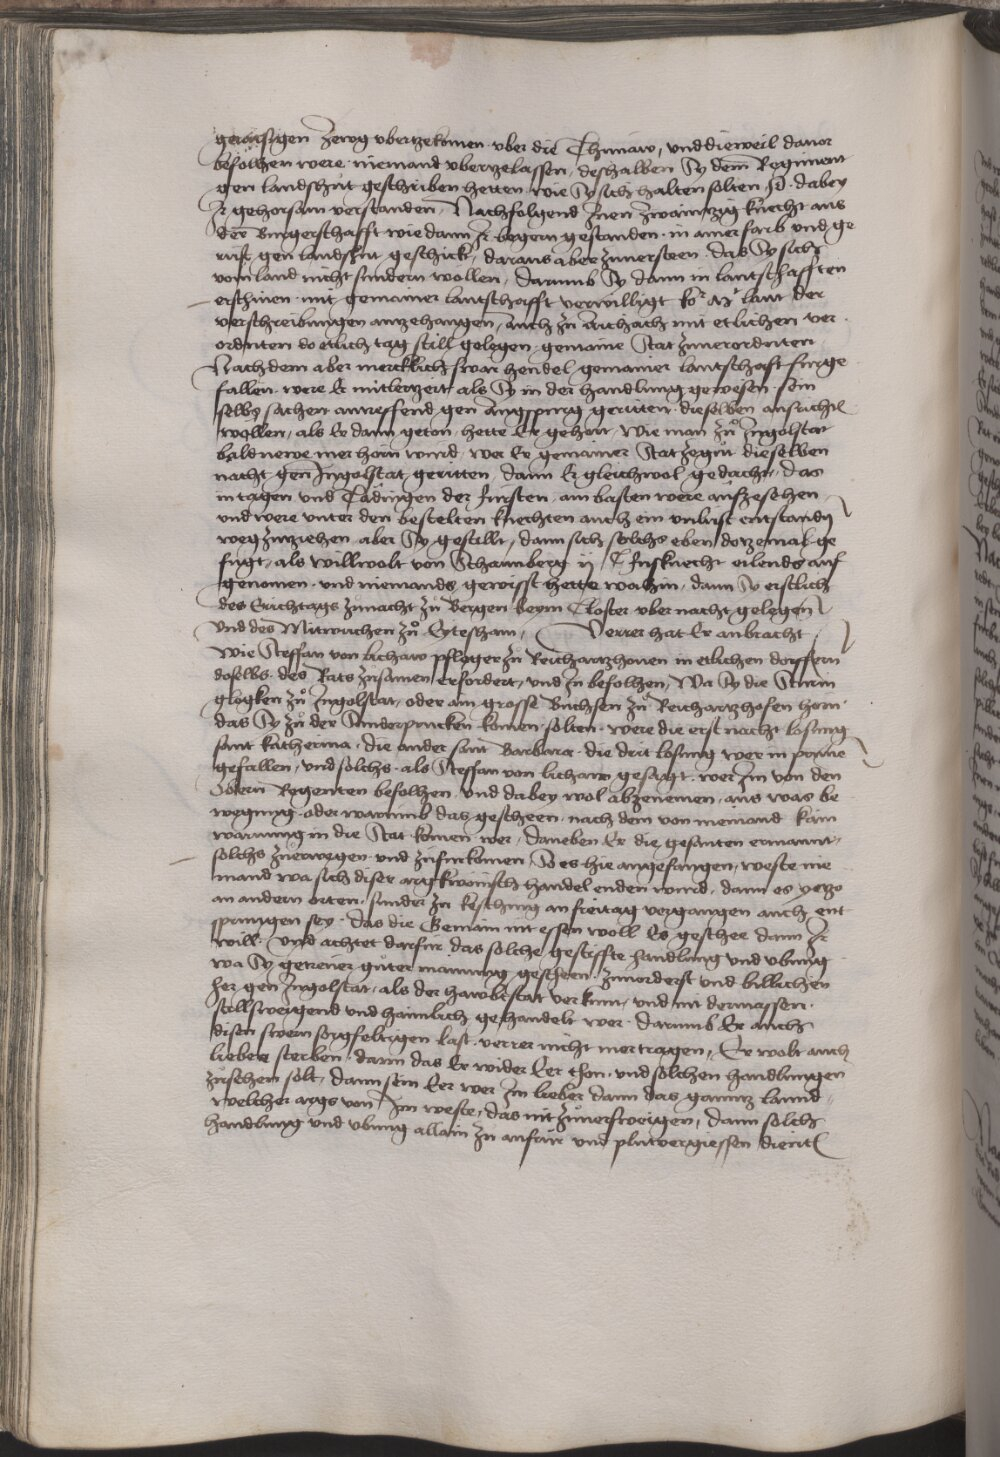 geraisigen zewg vbertzekomen vber die Thunaw, vnd dieweil dauor
befolhen were niemand vbertzelassen, deshalben Sy dem Regiment
gen landshut geschriben hetten wie Sy sich halten solten dabey
Ir gehorsam verstanden, Nachfolgend Inen zwaintzig knecht aus
der Burgerschafft wie dann Ir begern gestanden in ainer farb vnd ge
rust gen landshut geschickt, daraus aber zuuersteen das Sy sich
vom land nicht sundern wollen, darumb Sy dann in lantschafften
erschinen mit gemainer lantschafft verwilligt ko r M t laut der
verschreibungen antzehangen, auch zu Aichach mit etlichen ver
ordnten do etlich tag still gelegen gemaine Stat zuuerordnten
Nachdem aber mercklich swar hendel gemainer lantschaft furge
fallen were Er mitlertzeit als Sy in der handlung gewesen sein
selbs sachen antreffend gen Augspurg geritten dieselben ausrichten
wöllen, als Er dann geton, hette Er gehort, wie man zu Ingolstat
bald newe mer horn wurd, wer Er gemainer Stat zegut dieselben
nacht gen Ingolstat geritten, dann Er gleichwol gedacht, das
in tagen vnd Tädingen der fursten, am basten were aufzesehen,
vnd were vnter den bestelten knechten auch ein vnlust entstanden
weg zuziehen aber Sy gestillt, dann sich solchs eben dotzemal ge
fugt, als Willwolt von Schaumberg ij C fusknecht eilends auf
genomen vnd niemands gewisst hette wohin, dann Sy erstlich
des Erichtags zunacht zu Bergen beym Closter vber nacht gelegen
vnd des Mitwuchen zu Eytesham, Verrer hat Er anbracht,
Wie Steffan von lichaw pfleger zu Reichartzhouen in etlichen dörffern
doselbs des Rats zusamen erfordert, vnd In befolhen, Wa Sy die Sturm
glogken zu Ingolstat, oder ain grosse Buchsen zu Reichartzhofen horn
das Sy zu der Sunderprucken komen solten were die erst nacht losung
sant katherina, die ander sant Barbara die drit losung wer in
gefallen, vnd solchs als Steffan von lichaw gesagt wer Im von den
Obern Regenten befolhen vnd dabey wol abzenemen, aus was be
wegung oder warumb das gescheen, nach dem von niemand kain
warnung in die Stat komen wer, daneben Er die gesanten ermannt,
solchs zuerwegen vnd zufurkomen, So es hie angefangen, weste nie
mand wa sich diser argkwönisch handel enden wurd, dann es yetzo
an andern orten sunder zu kesching an freitag vergangen auch ent
sprungen sey das die Gemain nit essen woll Es geschee dann Ir
will vnd achtet darfur das solche gestiffte handlung vnd vbung
wa Sy getreuer guter mainung gescheen zuuorderst vnd billichen
her gen Ingolstat, als der hawbtstat verkunt, vnd nit dermassen
stillsweigend vnd haimlich gehandelt wer darumb Er auch
disen swern sorgfeltigen last verrer nicht mer tragen, Er wolt auch
lieber sterben, dann das Er wider Eer thon vnd solchen handlungen
zusehen solt, dann sein Eer wer Im lieber dann das gantz lannd,
welcher args von Im weste, das nit zuuersweigen, dann solch
handlung vnd vbung allain zu aufrur vnd plutvergiessen dientt